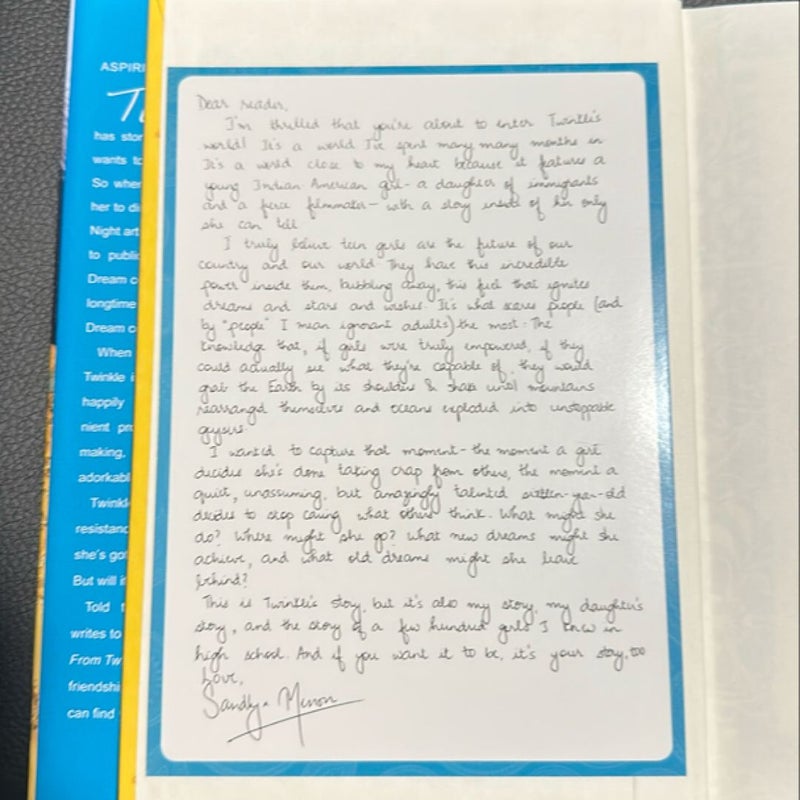 ASPIRI
T
has stor
wants to
So when
her to di
Night art
to public
Dream c
longtime
Dream o
When
Twinkle i
happily
nient pr
making,
adorkabl
Twinkl
resistanc
she's got
But will i
Told
writes to
From Tw
friendshi
can find
Dear reader,
I'm thrilled that you're about to enter Twinkle's
world! It's a world I've spent many many months in.
It's a world close to my heart because it features a
young Indian-American girl - a daughter of immigrants
and a fierce filmmaker - with a story inside of her only
she can tell.
I truly believe teen girls are the future of our
country and our world. They have this incredible
power inside them, bubbling away, this fuel that ignites
dreams and stars and wishes. It's what scares people (and
by "people" I mean ignorant adults) the most. The
knowledge that, if girls were truly empowered, if they
could actually see what they're capable of, they would
grab the Earth by its shoulders & shake until mountains
rearranged themselves and oceans exploded into unstoppable
geysers.
I wanted to capture that moment - the moment a girl
decides she's done taking crap from others, the moment a
quiet, unassuming, but amazingly talented sixteen-year-old
decides to stop caring what others think. What might she
do? Where might she go? What new dreams might she
achieve, and what old dreams might she leave
behind?
This is Twinkle's story, but it's also my story, my daughter's
story, and the story of a few hundred girls I knew in
high school. And if you want it to be, it's your story, too
Love,
Sandhya Menon